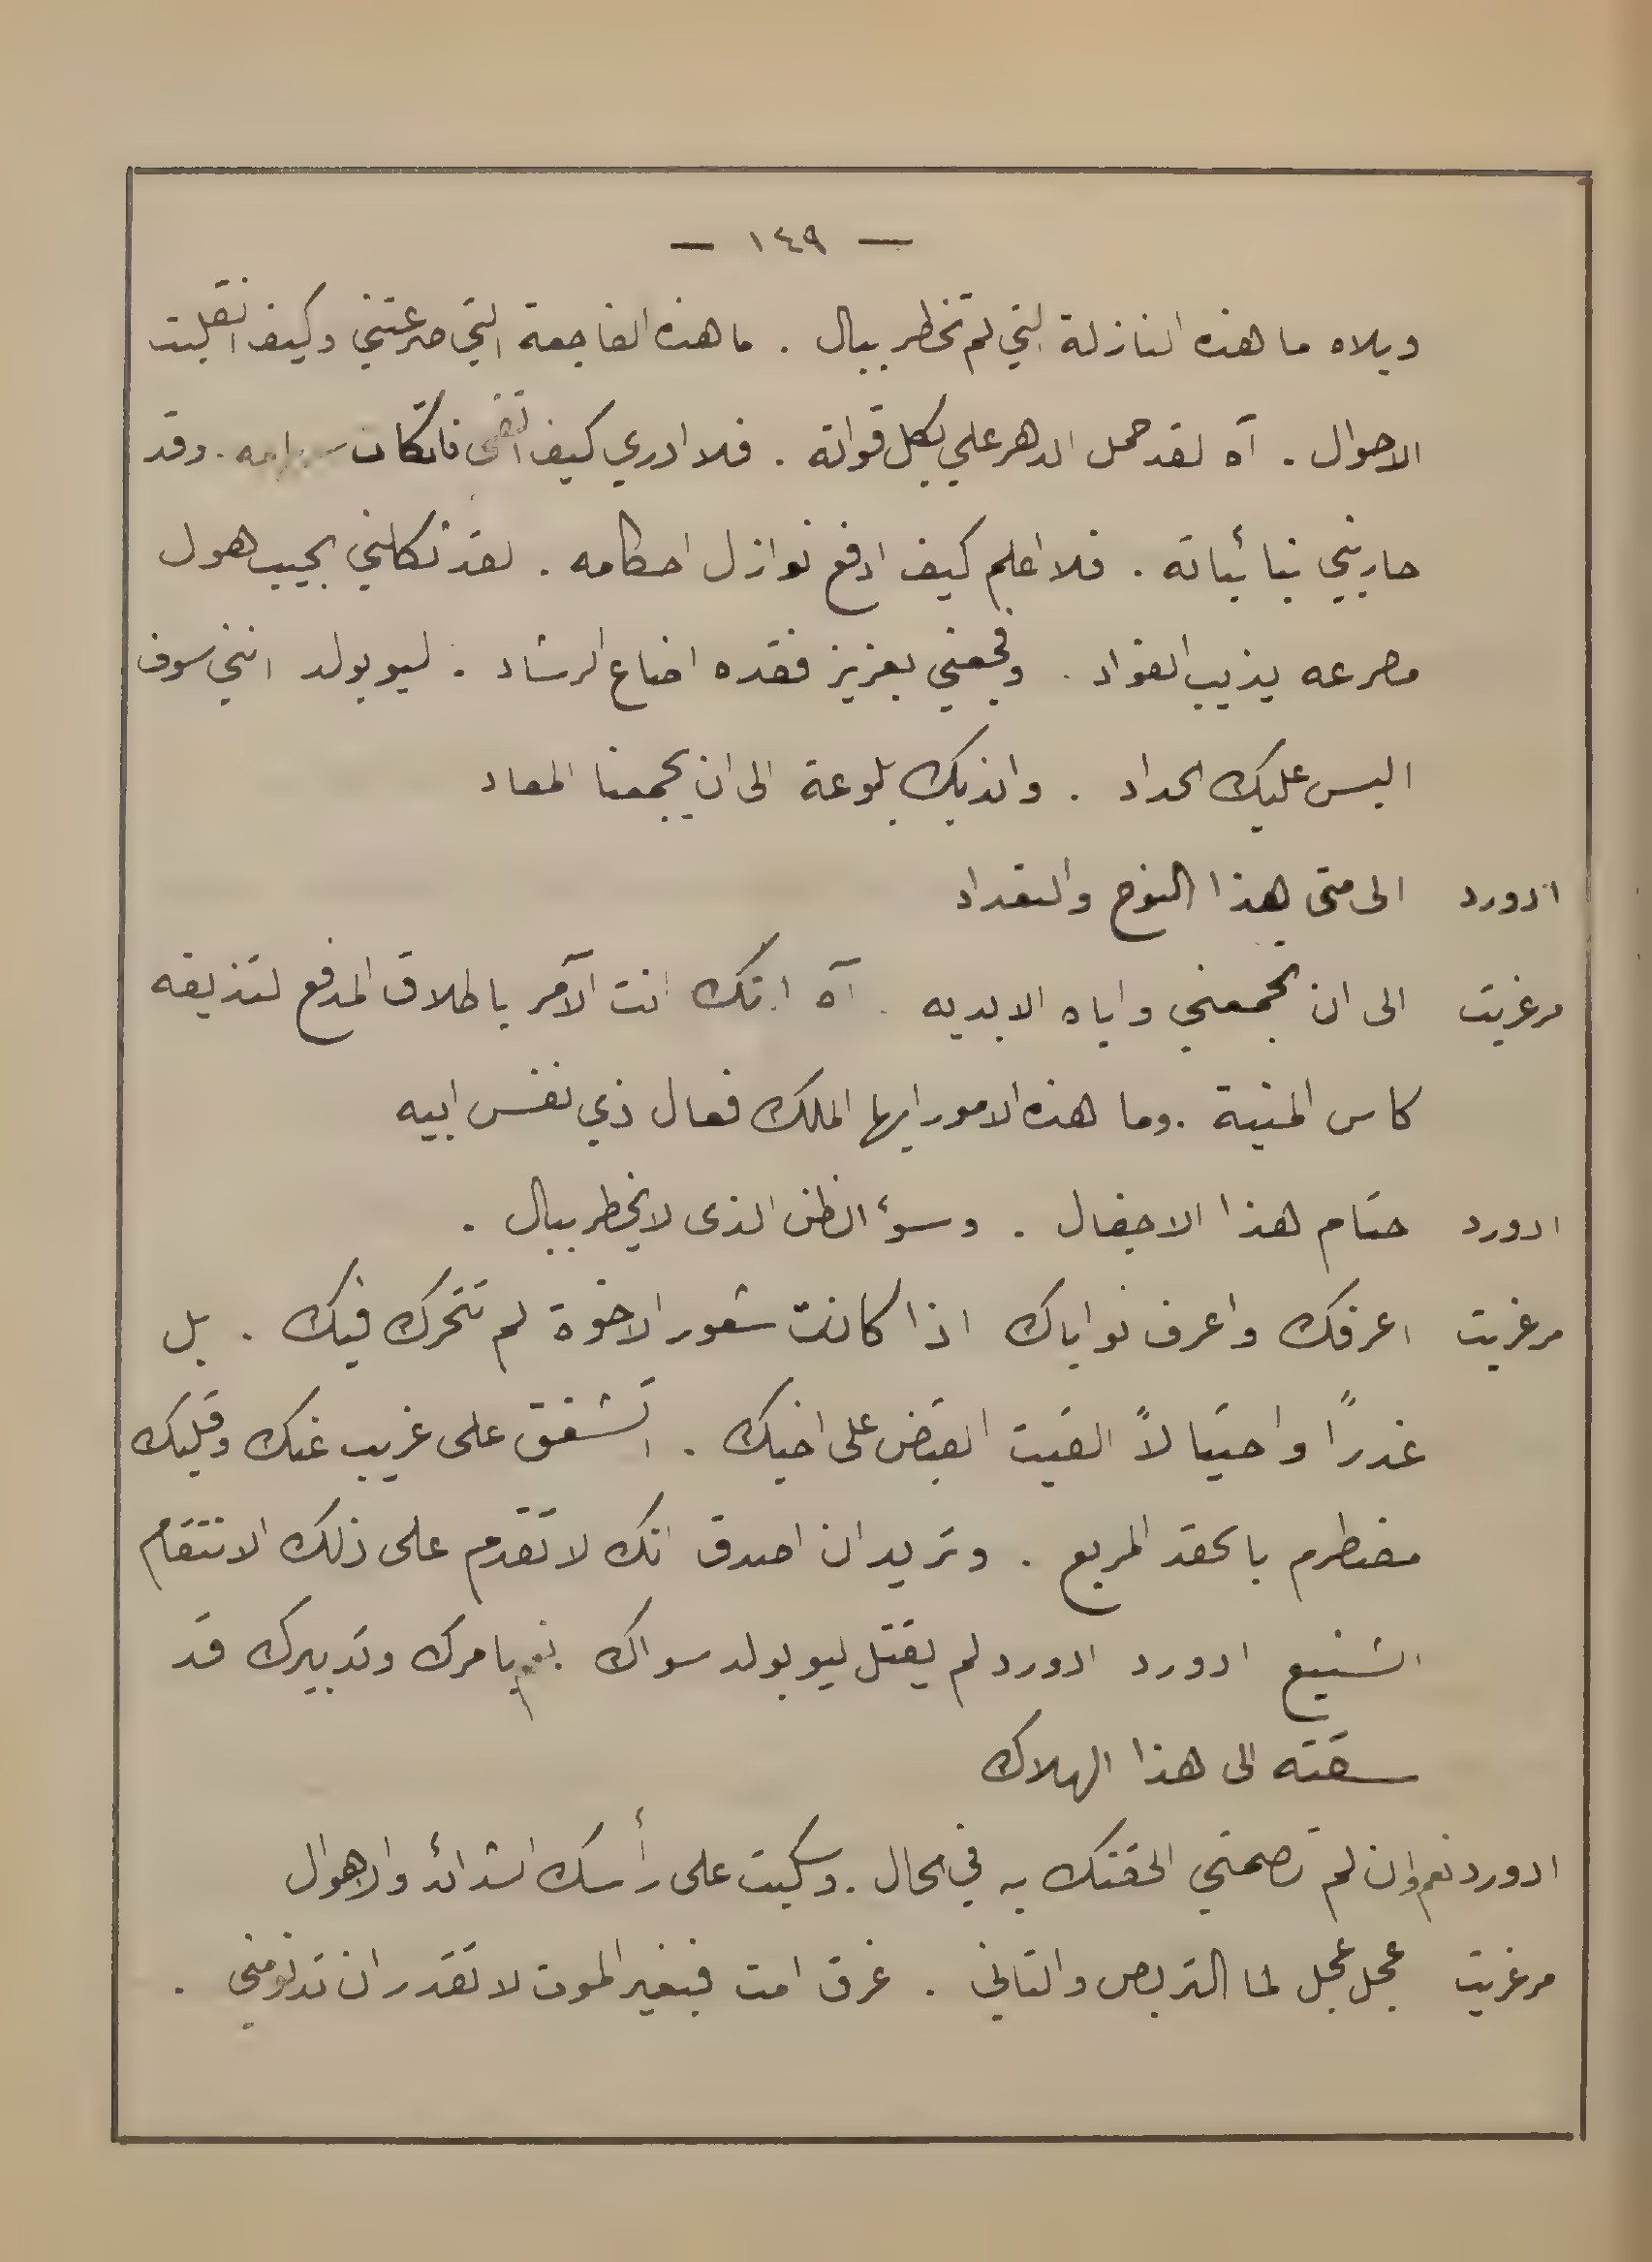 — ١٤٩ —
ويلاه ما هذه النازلة التي لم تخطر ببال . ما هذه الفاجعة التي صرعتني وكيف انقلبت
الاحوال . آه لقد حمل الدهر علي بكل قواته . فلا ادري كيف اتقي فاتكات سهامه . وقد
حاربني بنائباته . فلا اعلم كيف ادفع نوازل احكامه . لقد نكاني بحبيب هول
مصرعه يذيب الفؤاد . وفجعني بعزيز فقده اضاع الرشاد . ليوبولد انني سوف
البس عليك الحداد . واندبك بلوعة الى ان يجمعنا المعاد
ادورد الى متى هذا النوح والتعداد
مرغريت الى ان تجمعني واياه الابديه . آه انك انت الآمر باطلاق المدفع لتذيقه
كاس المنية . وما هذه الامور ايها الملك فعال ذي نفس ابيه
ادورد حتام هذا الاجفال . وسوء الظن الذى لا يخطر ببال .
مرغريت اعرفك واعرف نواياك اذا كانت شعور الاخوة لم تتحرك فيك . بل
غدرًا واحتيالاً القيت القبض على اخيك . اتشفق على غريب عنك وقلبك
مضطرم بالحقد المريع . وتريد ان اصدق انك لا تقدم على ذلك الانتقام
الشنيع ادورد ادورد لم يقتل ليوبولد سواك نعم بامرك وتدبيرك قد
سقته الى هذا الهلاك
ادورد نعم وان لم تصمتي الحقتك به في الحال . وسكبت على رأسك الشدائد والاهوال
مرغريت عجل عجل لما التربص والتاني . غرق امت فبغير الموت لا تقدر ان تدنو مني .